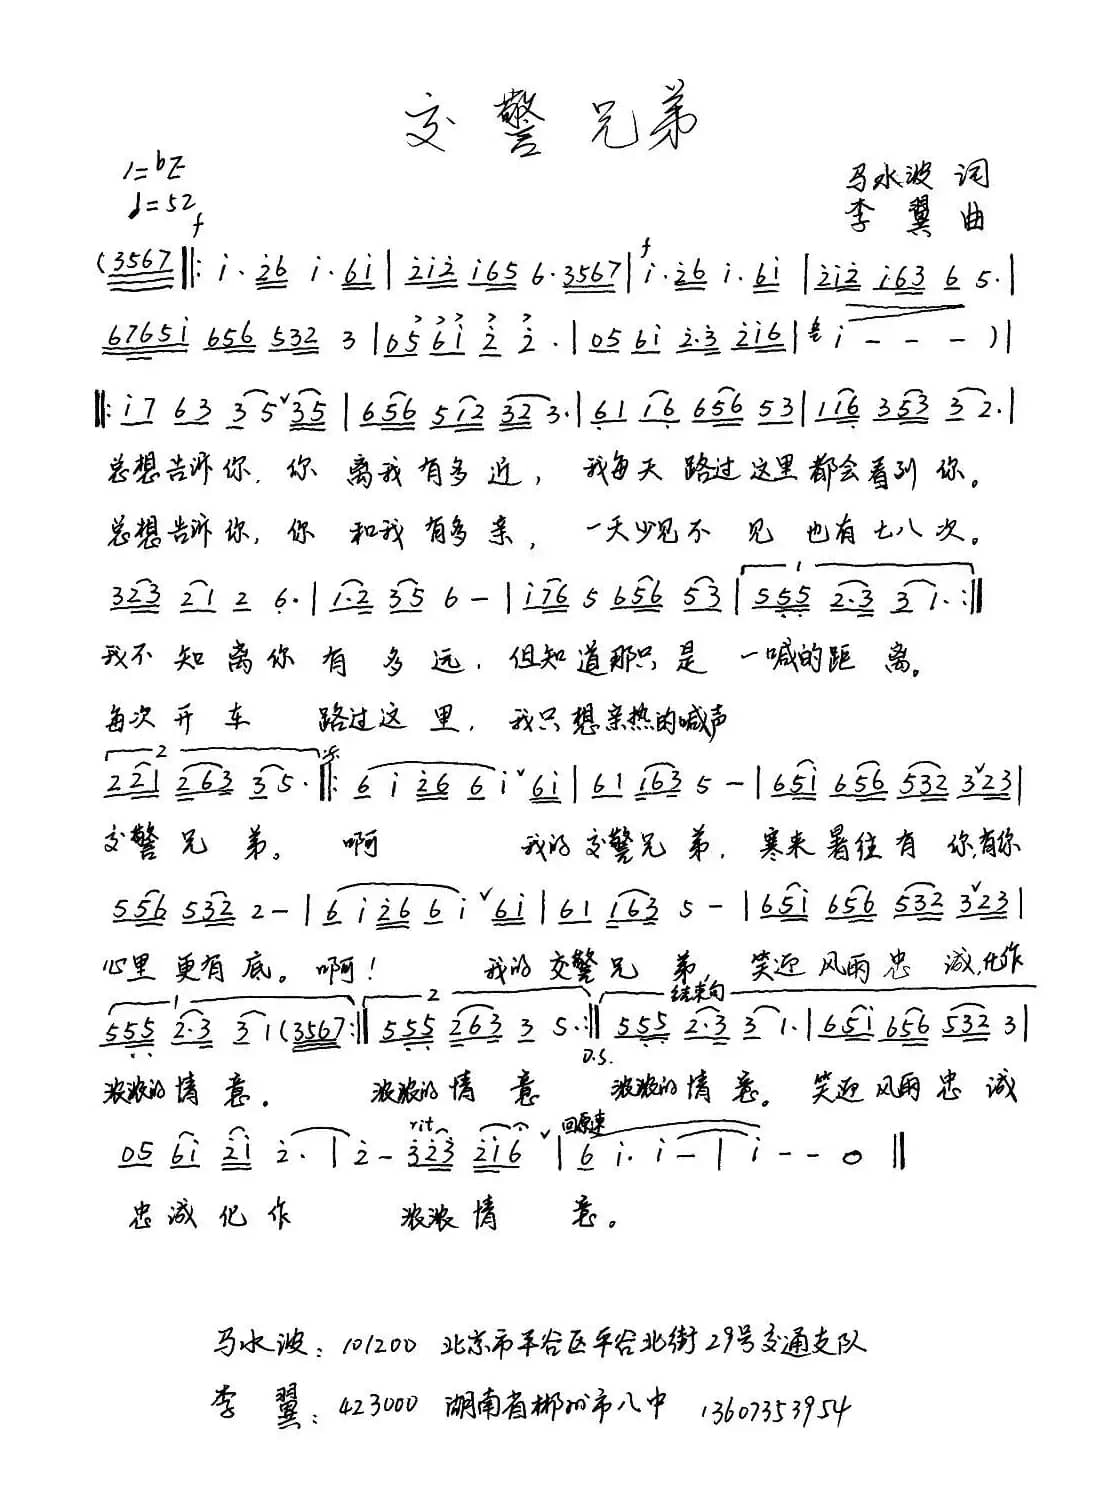 交警兄弟
1=bE
♩=52
马水波 词
李翼 曲
f
f
(3567 ‖: i·26 i·6i | 2i2 i65 6·3567 | i·26 i·6i | 2i2 i63 6 5· |
6765i 656 532 3 | 05 6i 2 2· | 05 6i 2·3 2i6 | i - - - ) |
‖: i7 63 35 ˅35 | 656 5i2 323· | 61 i6 656 53 | 116 353 32· |
总想告诉你,你 离我有多近, 我每天路过这里都会看到你。
总想告诉你,你 和我有多亲, 一天少见不见也有七八次。
1
323 21 2 6· | i·2 35 6 - | i76 5 656 53 | 555 2·3 31· :‖
我不知离你有多远,但知道那只是一喊的距离。
每次开车 路过这里,我只想亲热的喊声
2
221 263 35· :‖: 6 i 26 6 i ˅6i | 61 i63 5 - | 65i 656 532 3˅23 |
交警兄弟。 啊 我的交警兄弟,寒来暑往有你,有你
556 532 2 - | 6 i 26 6 i ˅6i | 61 i63 5 - | 65i 656 532 3˅23 |
心里更有底。啊! 我的交警兄弟,笑迎风雨忠诚,化作
1 2 结束句
555 2·3 31(3567 :‖ 555 263 3 5· :‖ 555 2·3 31· | 65i 656 532 3 |
D.S.
浓浓的情意。 浓浓的情意 浓浓的情意。笑迎风雨忠诚
rit 回原速
05 6i 2i 2· | 2 - 323 2i6 ˅ | 6 i· i - | i - - 0 ‖
忠诚化作 浓浓情意。
马水波: 101200 北京市平谷区平谷北街29号交通支队
李翼: 423000 湖南省郴州市八中 13607353954